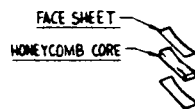 FACE SHEET
HONEYCOMB CORE